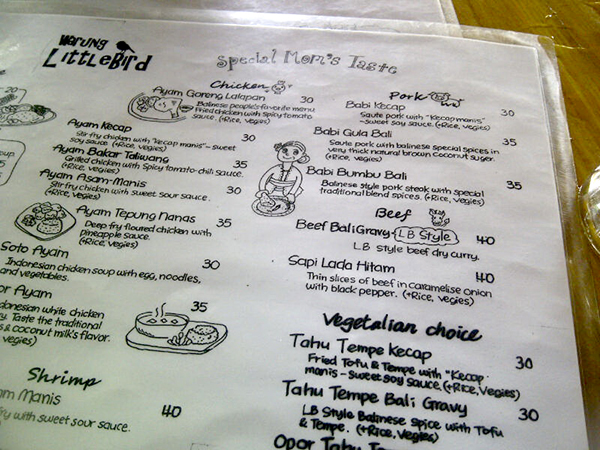 Warung
LittleBird
Special Mom's Taste
Chicken
Ayam Goreng Lalapan 30
Balinese people's favorite menu
Fried chicken with spicy tomato
sauce. (+Rice, vegies)
Ayam Kecap 30
Stir fry chicken with "kecap manis" - sweet
soy sauce. (+Rice, vegies)
Ayam Bakar Taliwang 35
Grilled chicken with spicy tomato chili sauce.
(+Rice, vegies)
Ayam Asam-Manis 30
Stir fry chicken with sweet sour sauce.
(+Rice, vegies)
Ayam Tepung Nanas 35
Deep fry floured chicken with
pineapple sauce.
(+Rice, vegies)
Soto Ayam 30
Indonesian chicken soup with egg, noodles,
and vegetables.
Ayam 35
white chicken
Taste the traditional
& coconut milk's flavor.
vegies)
Shrimp
Manis 40
with sweet sour sauce.
20
Pork
Babi Kecap 30
Saute pork with "Kecap manis"
- sweet soy sauce. (+Rice, vegies)
Babi Gula Bali 35
Saute pork with balinese special spices in
very thick natural brown Coconut suger.
(+Rice, vegies)
Babi Bumbu Bali 35
Balinese style pork steak with special
traditional blend spices. (+Rice, vegies)
Beef
Beef Bali Gravy - LB Style 40
LB style beef dry curry.
Sapi Lada Hitam 40
Thin slices of beef in caramelise onion
with black pepper. (+Rice, vegies)
Vegetalian choice
Tahu Tempe Kecap 30
Fried Tofu & Tempe with "Kecap
manis - sweet soy sauce. (+Rice, Vegies)
Tahu Tempe Bali Gravy 30
LB Style Balinese Spice with Tofu
& Tempe. (+Rice, Vegies)
Opor Tahu